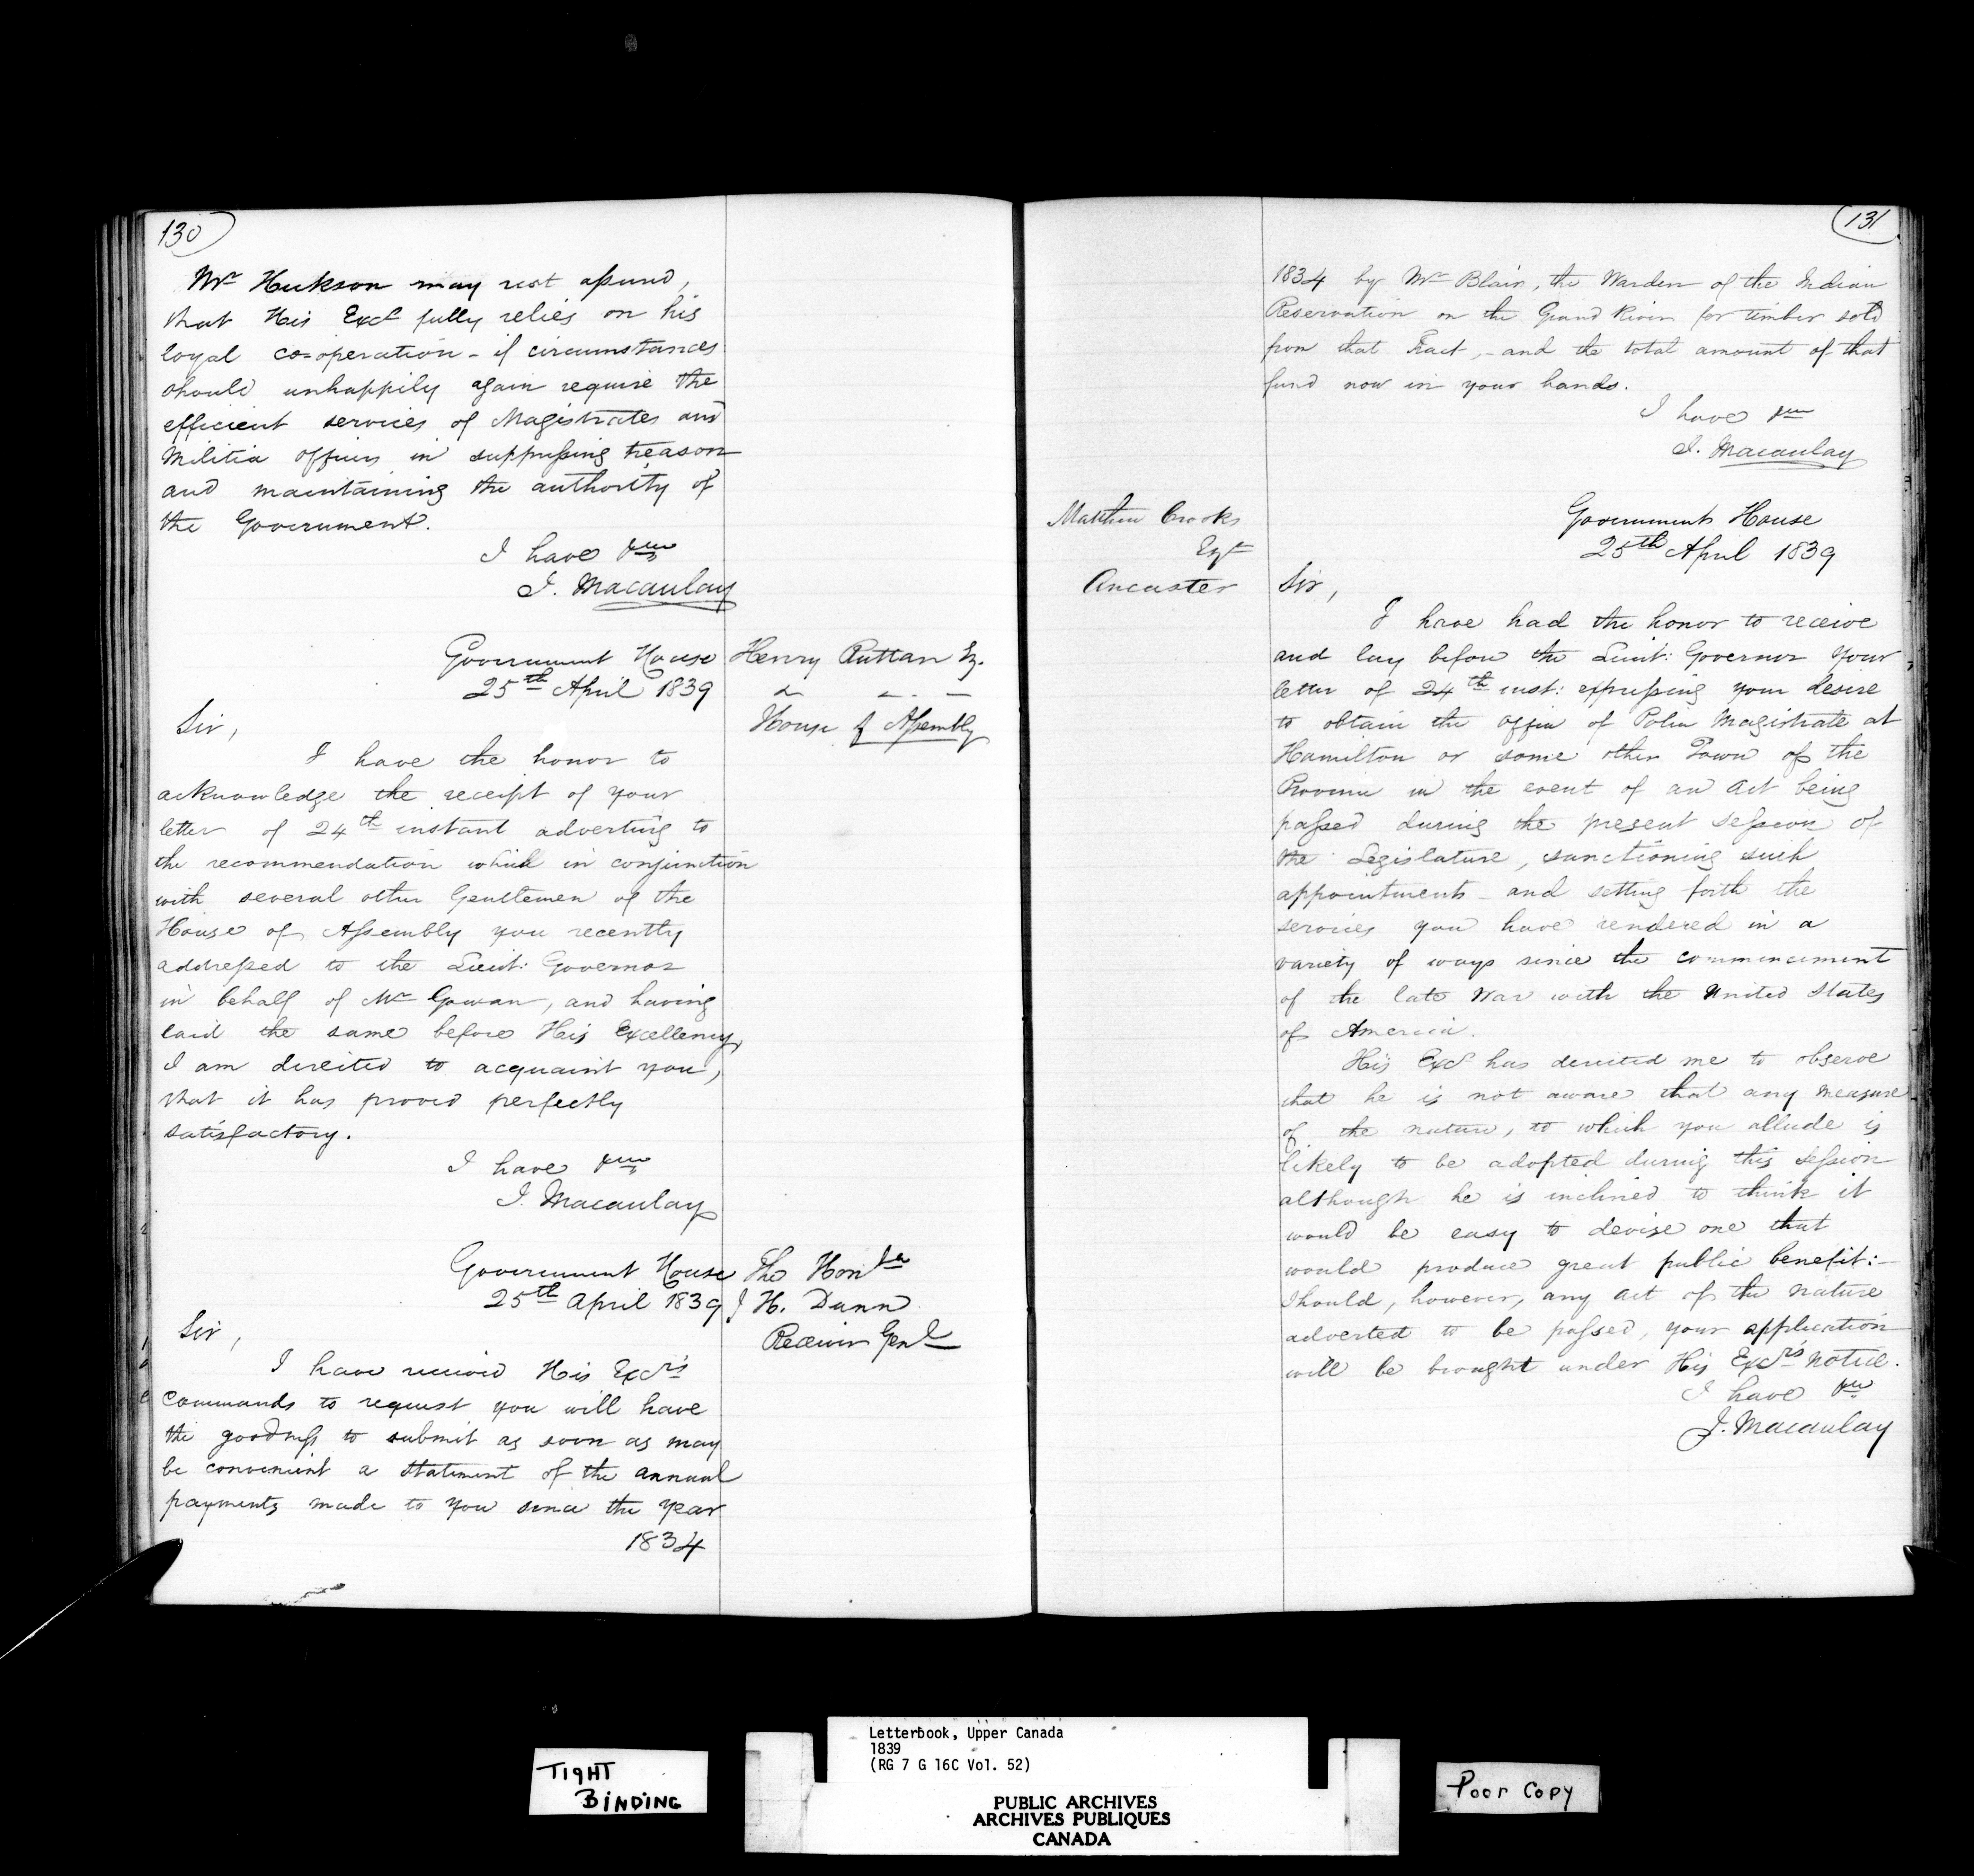 130
Mr Hickson may rest assured,
that His Excy fully relies on his
loyal co-operation - if circumstances
should unhappily again require the
efficient services of Magistrates and
Militia officers in suppressing treason
and maintaining the authority of
the Government.
I have &c
J. Macaulay
Henry Ruttan Eq.
House of Assembly
Government House
25th April 1839
Sir,
I have the honor to
acknowledge the receipt of your
letter of 24th instant adverting to
the recommendation which in conjunction
with several other Gentlemen of the
House of Assembly you recently
addressed to the Lieut: Governor
in behalf of Mr Gowan, and having
laid the same before His Excellency,
I am directed to acquaint you,
that it has proved perfectly
satisfactory.
I have &c
J. Macaulay
The Honble
J H. Dunn
Receiver Genl
Government House
25th April 1839
Sir,
I have received His Excy's
commands to request you will have
the goodness to submit as soon as may
be convenient a statement of the annual
payments made to you since the year
1834
131
1834 by Mr Blair, the Warden of the Indian
Reservation on the Grand River for timber sold
from that Tract, - and the total amount of that
fund now in your hands.
I have &c
J. Macaulay
Matthew Crooks
Esqr
Ancaster
Government House
25th April 1839
Sir,
I have had the honor to receive
and lay before the Lieut: Governor your
letter of 24th inst: expressing your desire
to obtain the office of Police Magistrate at
Hamilton or some other Town of the
Province in the event of an Act being
passed during the present Session of
the Legislature, sanctioning such
appointments - and setting forth the
services you have rendered in a
variety of ways since the commencement
of the late War with the United States
of America.
His Excy has directed me to observe
that he is not aware that any measure
of the nature, to which you allude is
likely to be adopted during this Session
although he is inclined to think it
would be easy to devise one that
would produce great public benefit:-
Should, however, any act of the nature
adverted to be passed, your application
will be brought under His Excy's notice.
I have &c
J. Macaulay
TIGHT
BINDING
Letterbook, Upper Canada
1839
(RG 7 G 16C Vol. 52)
PUBLIC ARCHIVES
ARCHIVES PUBLIQUES
CANADA
Poor Copy